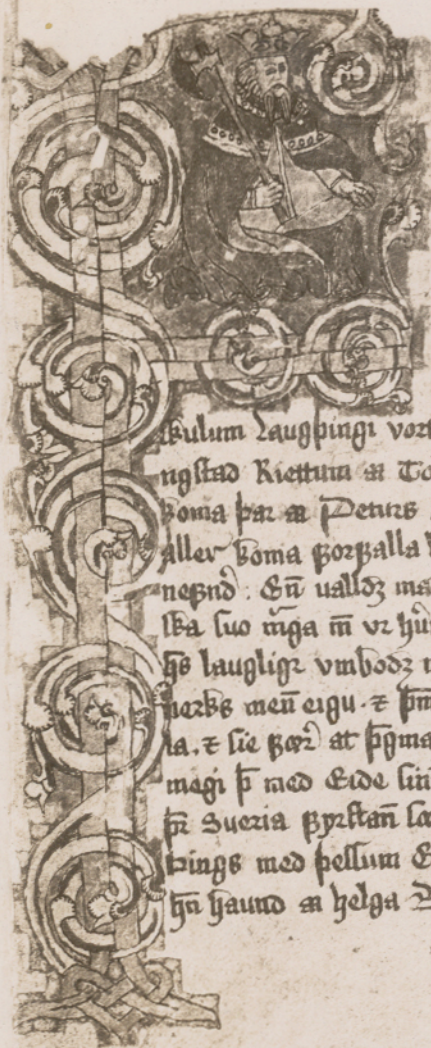 skulum Laugþingi vort
ngstad Riettum a To
koma þar a Peturs
aller koma forfalla l
nefnd. En̄ ualldz ma
ska suo mga m̄ vr hu
hs laugligr vmbodz m
uerks men̄ eigu. ⁊ þm
la. ⁊ sie for at þgma
megi þ med Eide sin
þr Sueria fyrstan̄ so
þings med þessum E
hn̄ haund a helga B